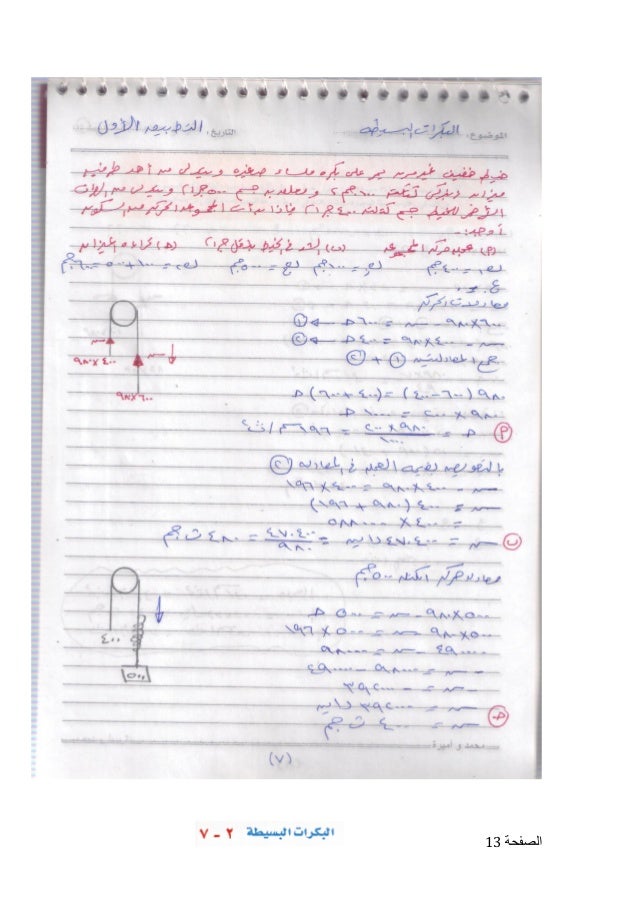 الموضوع: البكرات البسيطة التاريخ: التطبيق الأول
خيط خفيف غير مرن يمر على بكرة ملساء صغيرة ويتدلى من أحد طرفيه
ميزان زنبركي كتلته ١٠٠ جم ومعلق به جسم ٥٠٠ جرام ويتدلى من الطرف
الآخر للخيط جسم كتلته ٤٠٠ جرام فإذا بدأت المجموعة الحركة من السكون
أوجد:-
(٢) عجلة حركة المجموعة (ب) الشد في الخيط بثقل جرام (ح) قراءة الميزان
ك١ = ٤٠٠ جم ك٢ = ١٠٠ جم ك٣ = ٥٠٠ جم ك٢ = ١٠٠ + ٥٠٠ = ٦٠٠ جم
ع. = .
معادلات الحركة
٦٠٠×٩٨٠ - س = ٦٠٠ ح ← ①
س - ٤٠٠×٩٨٠ = ٤٠٠ ح ← ②
جمع المعادلتين ① + ②
٩٨٠ (٦٠٠-٤٠٠) = (٤٠٠+٦٠٠) ح
٩٨٠ × ٢٠٠ = ١٠٠٠ ح
ح = ٩٨٠×٢٠٠ / ١٠٠٠ = ١٩٦ سم/ث٢
بالتعويض بقيمة العجلة في المعادلة ②
س - ٤٠٠×٩٨٠ = ٤٠٠×١٩٦
س = ٤٠٠ (٩٨٠ + ١٩٦)
س = ٤٧٠٤٠٠ داين = ٤٧٠٤٠٠ / ٩٨٠ = ٤٨٠ ث جم
معادلة حركة الكتلة ٥٠٠ جم
٥٠٠×٩٨٠ - س = ٥٠٠ ح
٥٠٠×٩٨٠ - س = ٥٠٠ × ١٩٦
٤٩٠٠٠٠ - س = ٩٨٠٠٠
- س = ٩٨٠٠٠ - ٤٩٠٠٠٠
- س = - ٣٩٢٠٠٠
س = ٣٩٢٠٠٠ داين
س = ٤٠٠ ث جم
س
س
٩٨٠×٤٠٠
٩٨×٦٠٠
٤٠٠
٥٠٠
محمد و أميرة
(٧)
البكرات البسيطة ٢ - ٧
الصفحة 13